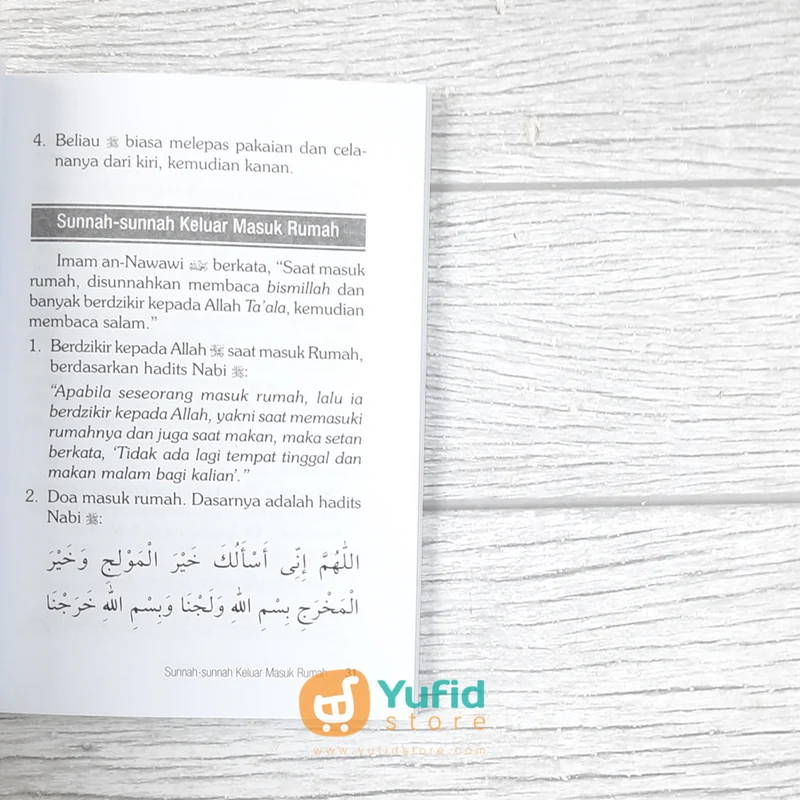 4. Beliau ﷺ biasa melepas pakaian dan cela-
nanya dari kiri, kemudian kanan.
Sunnah-sunnah Keluar Masuk Rumah
Imam an-Nawawi berkata, “Saat masuk
rumah, disunnahkan membaca bismillah dan
banyak berdzikir kepada Allah Ta’ala, kemudian
membaca salam.”
1. Berdzikir kepada Allah saat masuk Rumah,
berdasarkan hadits Nabi ﷺ:
“Apabila seseorang masuk rumah, lalu ia
berdzikir kepada Allah, yakni saat memasuki
rumahnya dan juga saat makan, maka setan
berkata, ‘Tidak ada lagi tempat tinggal dan
makan malam bagi kalian’.”
2. Doa masuk rumah. Dasarnya adalah hadits
Nabi ﷺ:
اللّٰهُمَّ إِنِّى أَسْأَلُكَ خَيْرَ الْمَوْلِجِ وَخَيْرَ
الْمَخْرَجِ بِسْمِ اللهِ وَلَجْنَا وَبِسْمِ اللهِ خَرَجْنَا
Sunnah-sunnah Keluar Masuk Rumah 31
Yufid
store
www.yufidstore.com